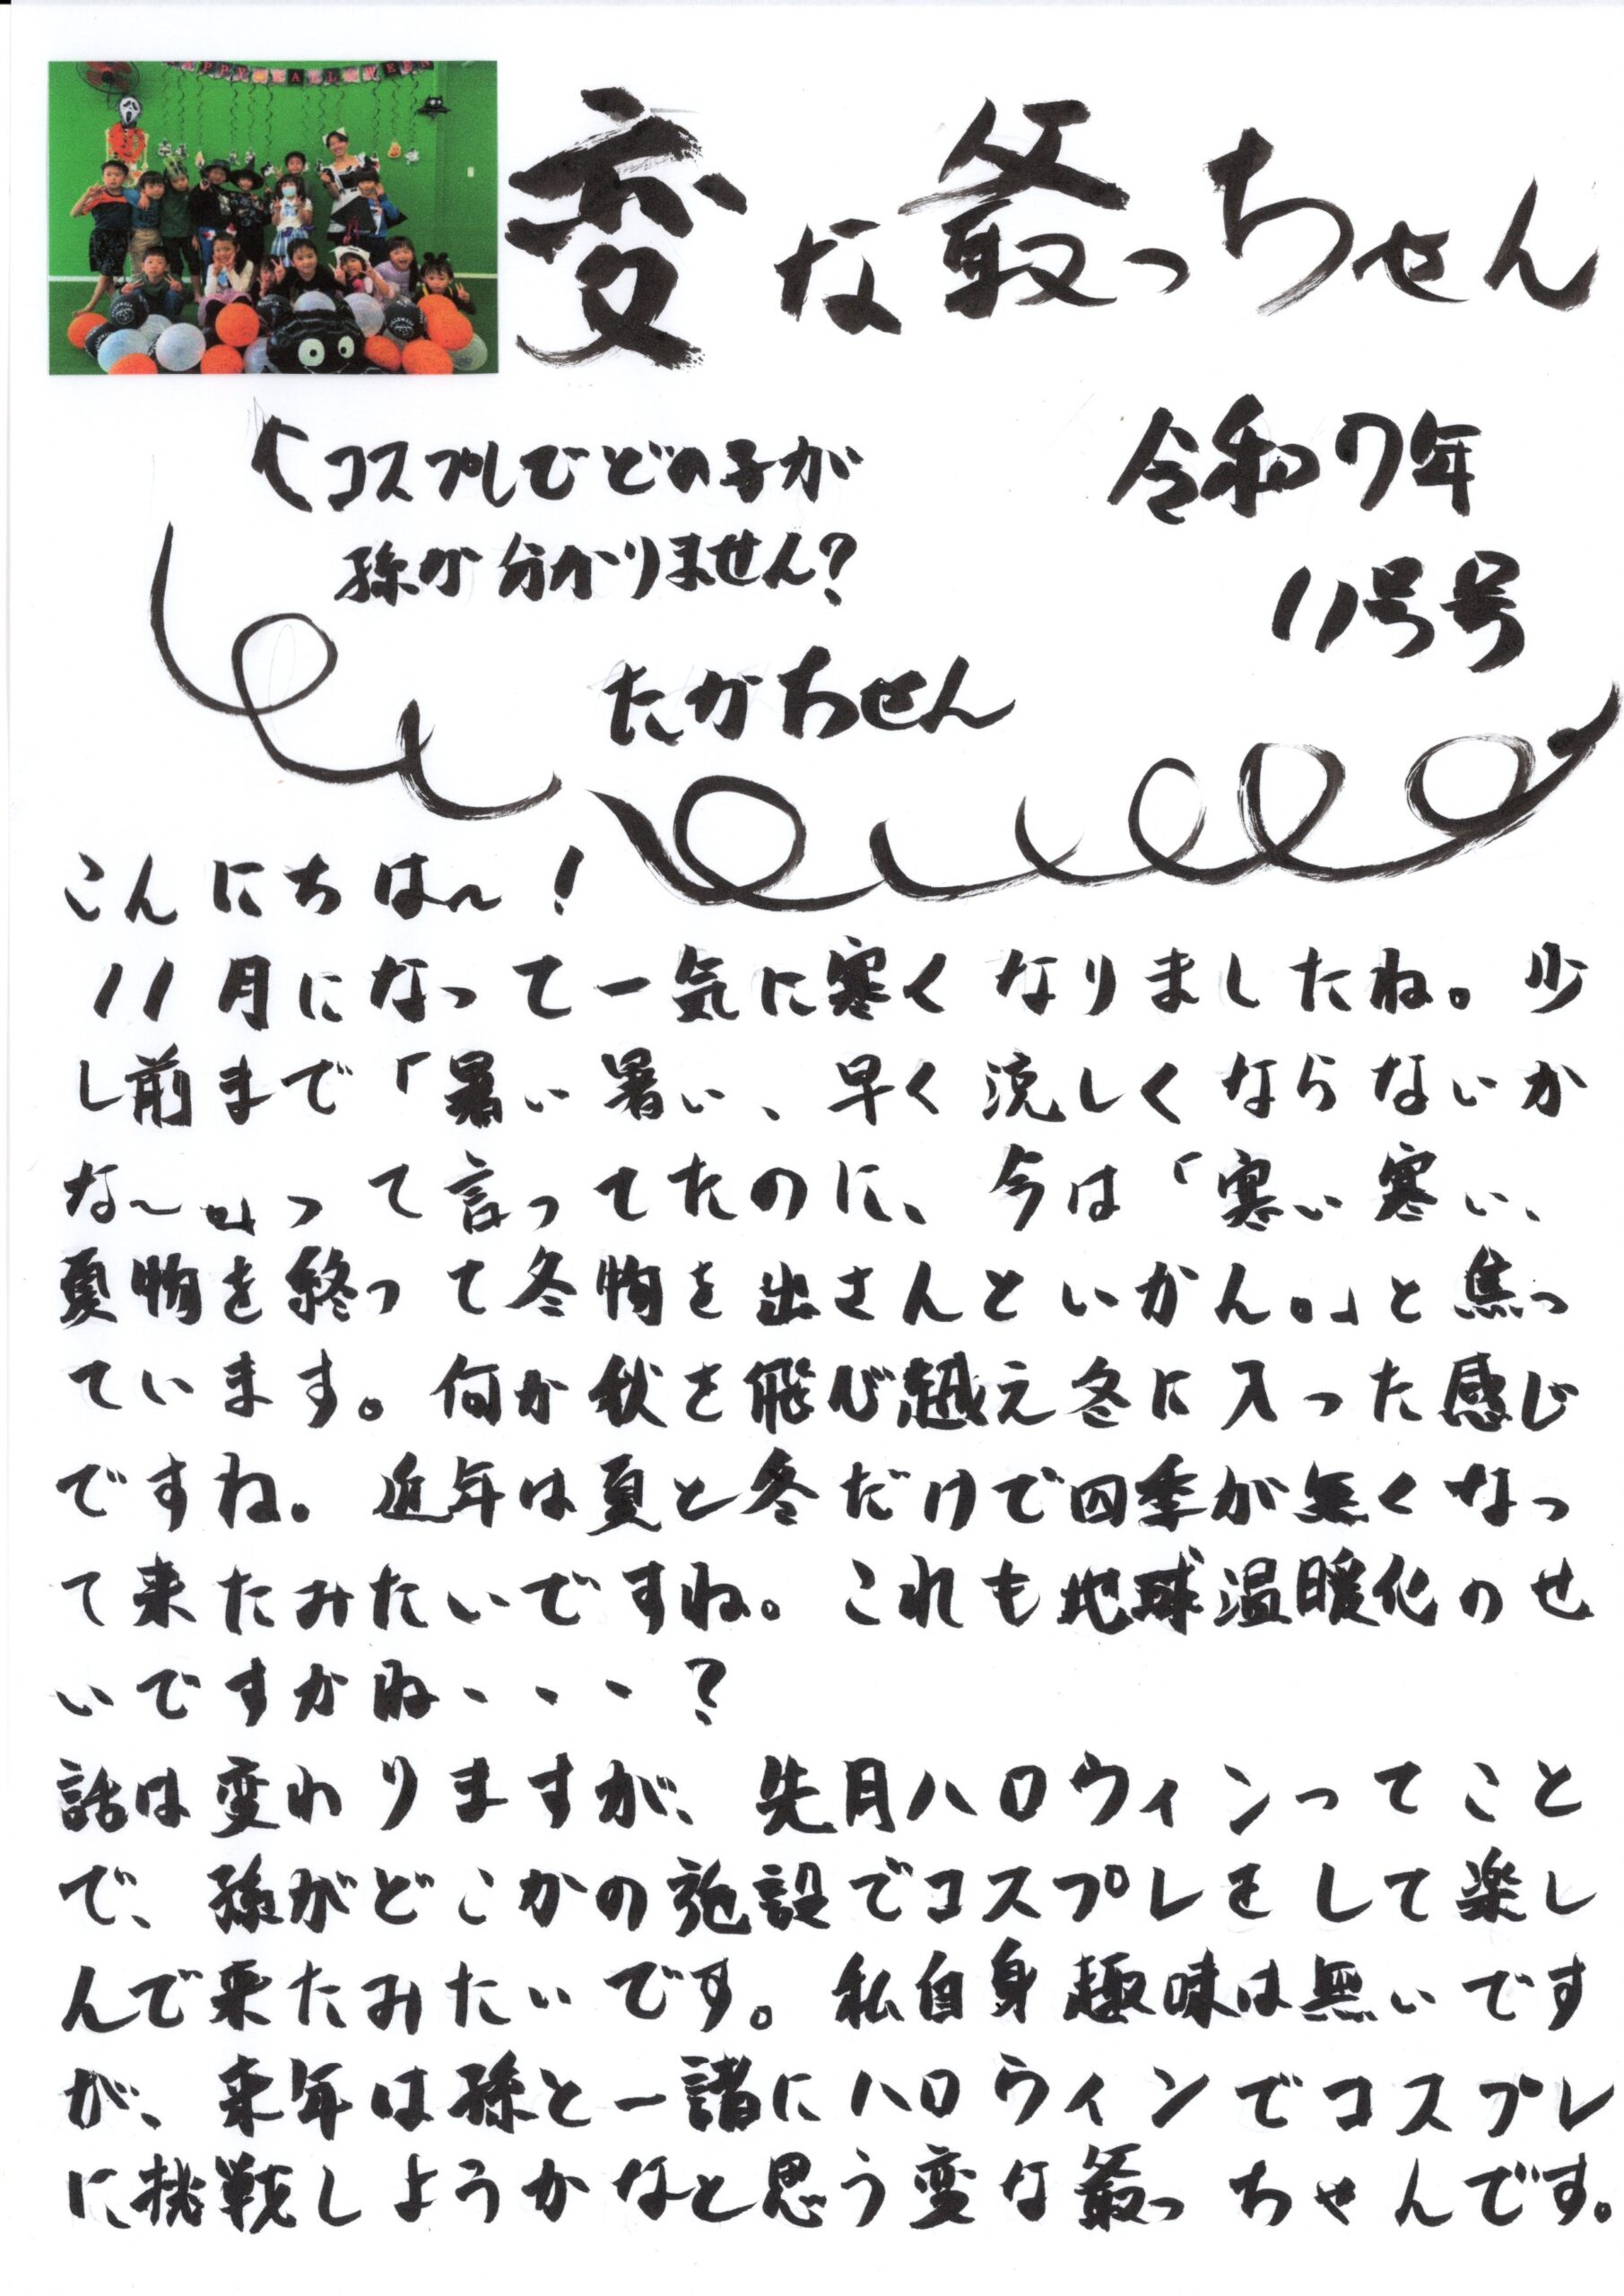 HAPPY HALLOWEEN
変な爺っちゃん
コスプレでどの子が
孫か分かりません?
令和7年
11号号
たかちゃん
こんにちは〜!
11月になって一気に寒くなりましたね。少
し前まで「暑い暑い、早く涼しくならないか
な〜。」って言ってたのに、今は「寒い寒い、
夏物を終って冬物を出さんといかん。」と焦っ
ています。何か秋を飛び越え冬に入った感じ
ですね。近年は夏と冬だけで四季が無くなっ
て来たみたいですね。これも地球温暖化のせ
いですかね、、、?
話は変わりますが、先月ハロウィンってこと
で、孫がどこかの施設でコスプレをして楽し
んで来たみたいです。私自身趣味は無いです
が、来年は孫と一諸にハロウィンでコスプレ
に挑戦しようかなと思う変な爺っちゃんです。